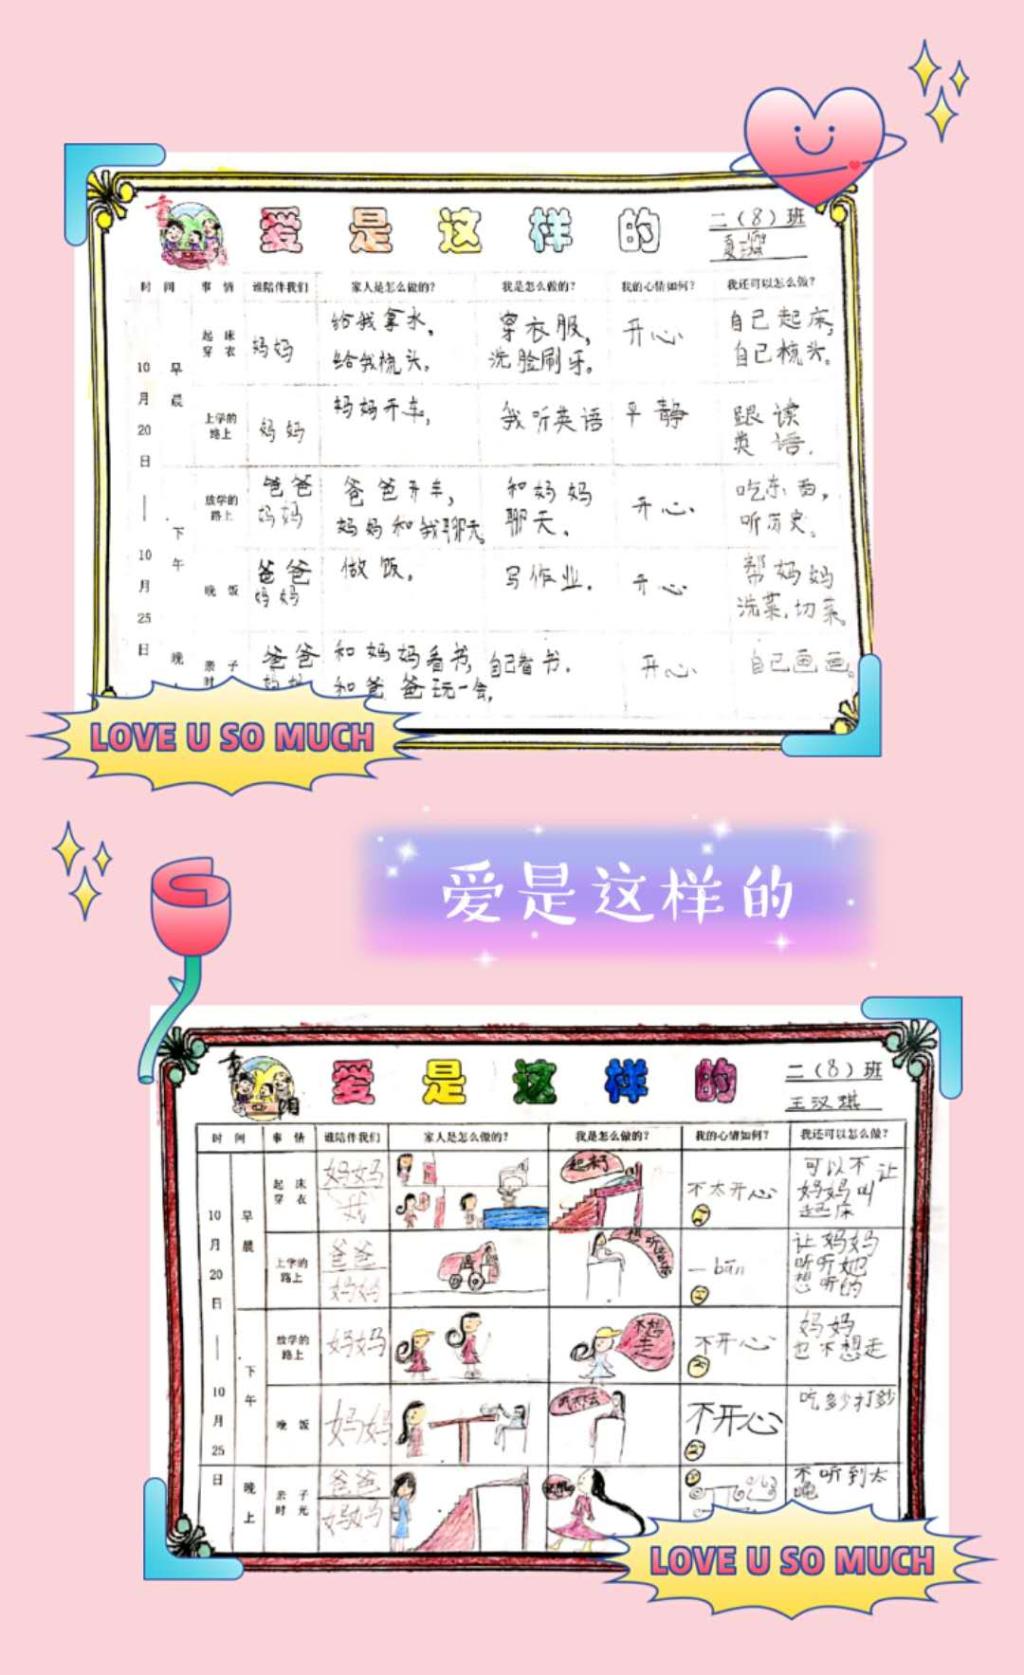 爱是这样的
二（8）班
时 间 事 情 谁陪伴我们 家人是怎么做的？ 我是怎么做的？ 我的心情如何？ 我还可以怎么做？
10月20日——10月25日
早晨
起床穿衣
妈妈
给我拿水，
给我梳头。
穿衣服，
洗脸刷牙。
开心
自己起床，
自己梳头。
上学的路上
妈妈
妈妈开车，
我听英语
平静
跟读
英语.
下午
放学的路上
爸爸
妈妈
爸爸开车，
妈妈和我聊天。
和妈妈
聊天.
开心.
吃东西，
听历史。
晚饭
爸爸
妈妈
做饭，
写作业.
开心
帮妈妈
洗菜，切菜。
晚
亲子
爸爸
妈妈
和妈妈看书，
和爸爸玩一会，
自己看书.
开心.
自己画画。
LOVE U SO MUCH
爱是这样的
爱是这样的
二（8）班
王汉琪
时 间 事 情 谁陪伴我们 家人是怎么做的？ 我是怎么做的？ 我的心情如何？ 我还可以怎么做？
10月20日——10月25日
早晨
起床穿衣
妈妈
我
起床了
不太开心
可以不让
妈妈叫
起床
上学的路上
爸爸
妈妈
一bān
让妈妈
听听她
想听的
下午
放学的路上
妈妈
不想
走
不开心
妈妈
也不想走
晚饭
妈妈
不开心
吃多少打多少
晚上
亲子时光
爸爸
妈妈
不听到太
晚
LOVE U SO MUCH